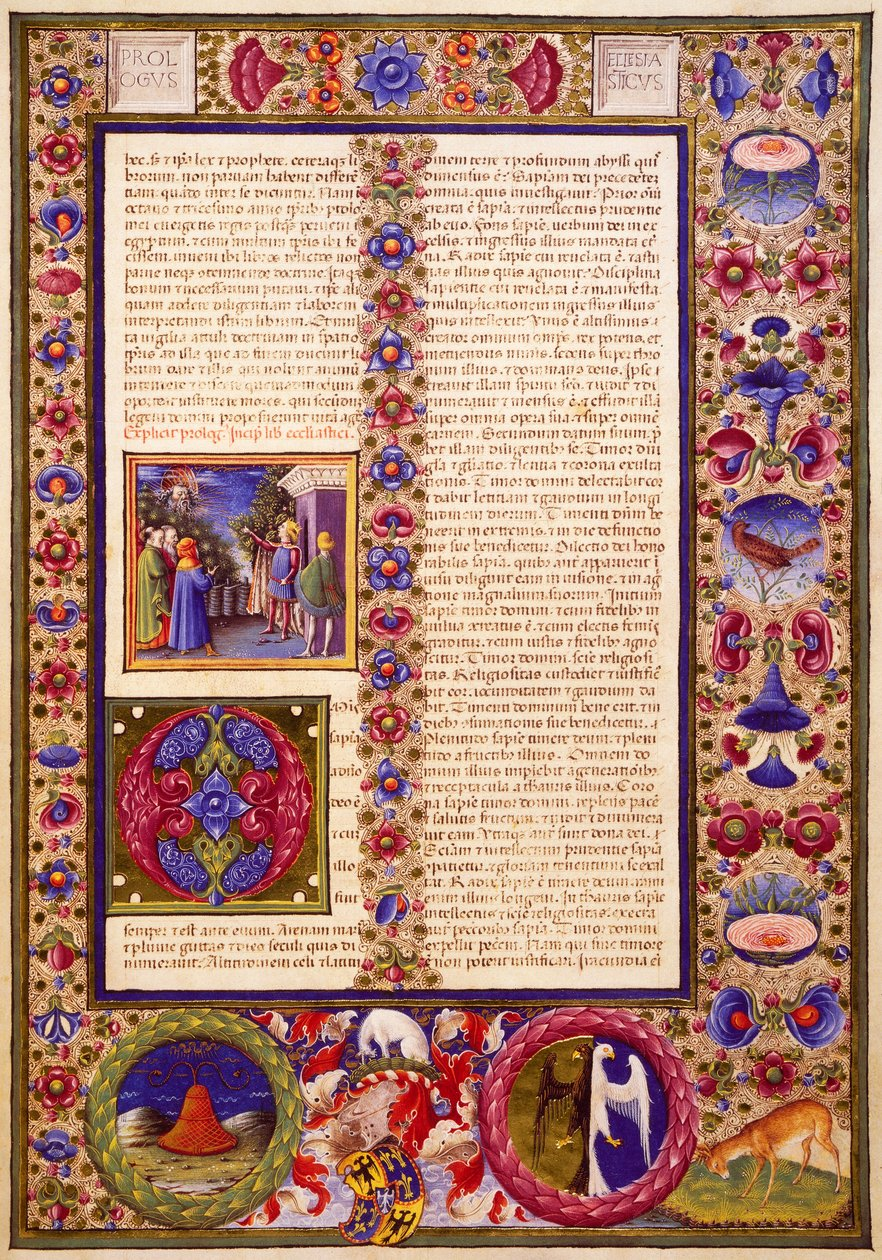 PROL
OGVS
ECCLESIA
STICVS
hec. sʒ & ip̄a lex & prophete. ceteraqʒ li
brorum. non paruam habent differē
tiam. quādo inter se dicūtur. Nam
octauo & tricesimo anno tp̄ribʒ ptolo
mei euergetis regis postqʒ perueni ī
egyptum. & cum multum tp̄is ibi fe
cissem. inueni ibi libros relictos non
parue neqʒ ɔtemnende doctrine. Itaqʒ
bonum & necessarium putaui. & ip̄e ali
quam addere diligentiam & laborem
interpretandi istum librum. Et mul
ta uigilia attuli doctrinam in spatio
tp̄ris ad illa que ad finem ducunt li
brum dare & illis qui uolunt animū
intendere & discere quemadmodum
oporteat instituere mores. qui secundū
legem domini proposuerint uitā age
Explicit prologꝰ. Incip̄ lib ecclīastici.
Mis
sapīa
a dn̄o
deo ē
& cum
illo
fuit
semper & est ante euum. Arenam maris
& pluuie guttas & dies seculi quis di
numerauit. Altitudinem celi & latitu
dinem terre & profundum abyssi quis
dimensus ē. Sapīam dei precedētem
omnia. quis inuestigauit. Prior oīum
creata ē sapīa. & intellectus prudentie
ab euo. Fons sapīe. uerbum dei in ex
celsis. & ingressus illius mandata et̄
na. Radix sapīe cui reuelata ē. & astu
tias illius quis agnouit. Disciplina
sapientie cui reuelata ē & manifesta.
& multiplicationem ingressus illius
quis intellexit. Vnus ē altissimus.
creator omnium omp̄s. rex potens. et
metuendus nimis. sedens super thro
num illius. & dominans deus. Ipse
creauit illam spiritu scō. & uidit & di
numerauit & mensus ē. & effudit illā
super omnia opera sua & super omnē
carnem. Secundum datum suum. p̄
bet illam diligentibꝰ se. Timor dn̄i
glā & gl̄iatio. & letitia & corona exulta
tionis. Timor domini delectabit cor
& dabit letitiam & gaudium in longi
tudinem dierum. Timenti dn̄m be
ne erit in extremis. & in die defunctio
nis sue benedicetur. Dilectio dei hono
rabilis sapīa. quibꝰ aut̄ apparuerit ī
uisu diligunt eam in uisione. & in ag
nitione magnalium suorum. Initium
sapīe timor domini. & cum fidelibꝰ in
uulua ɔcreatus ē. & cum electis feminis
graditur. & cum iustis & fidelibꝰ agno
scitur. Timor domini. scīe religiosi
tas. Religiositas custodiet & iustific
bit cor. iocunditatem & gaudium da
bit. Timenti dominum bene erit. & in
diebꝰ ɔsumationis sue benedicetur.
Plenitudo sapīe timere deum. & pleni
tudo a fructibꝰ illius. Omnem do
mum illius implebit a generationibꝰ
& receptacula a thauris illius. Coro
na sapīe timor domini. repleus pacē
& salutis fructum. & uidit & dinumera
uit eam. Vtraqʒ aut̄ sunt dona dei.
Sciam & intellectum prudentie sapīa
ɔpartietur. & gloriam tenentium se exal
tat. Radix sapīe ē timere deum. rami
enim illius longeui. In thauris sapīe
intellectus & scīe religiositas. execra
tio aut̄ peccoribꝰ sapīa. Timor domini
expellit pecc̄m. Nam qui sine timore
ē non poterit iustificari. Iracundia eī